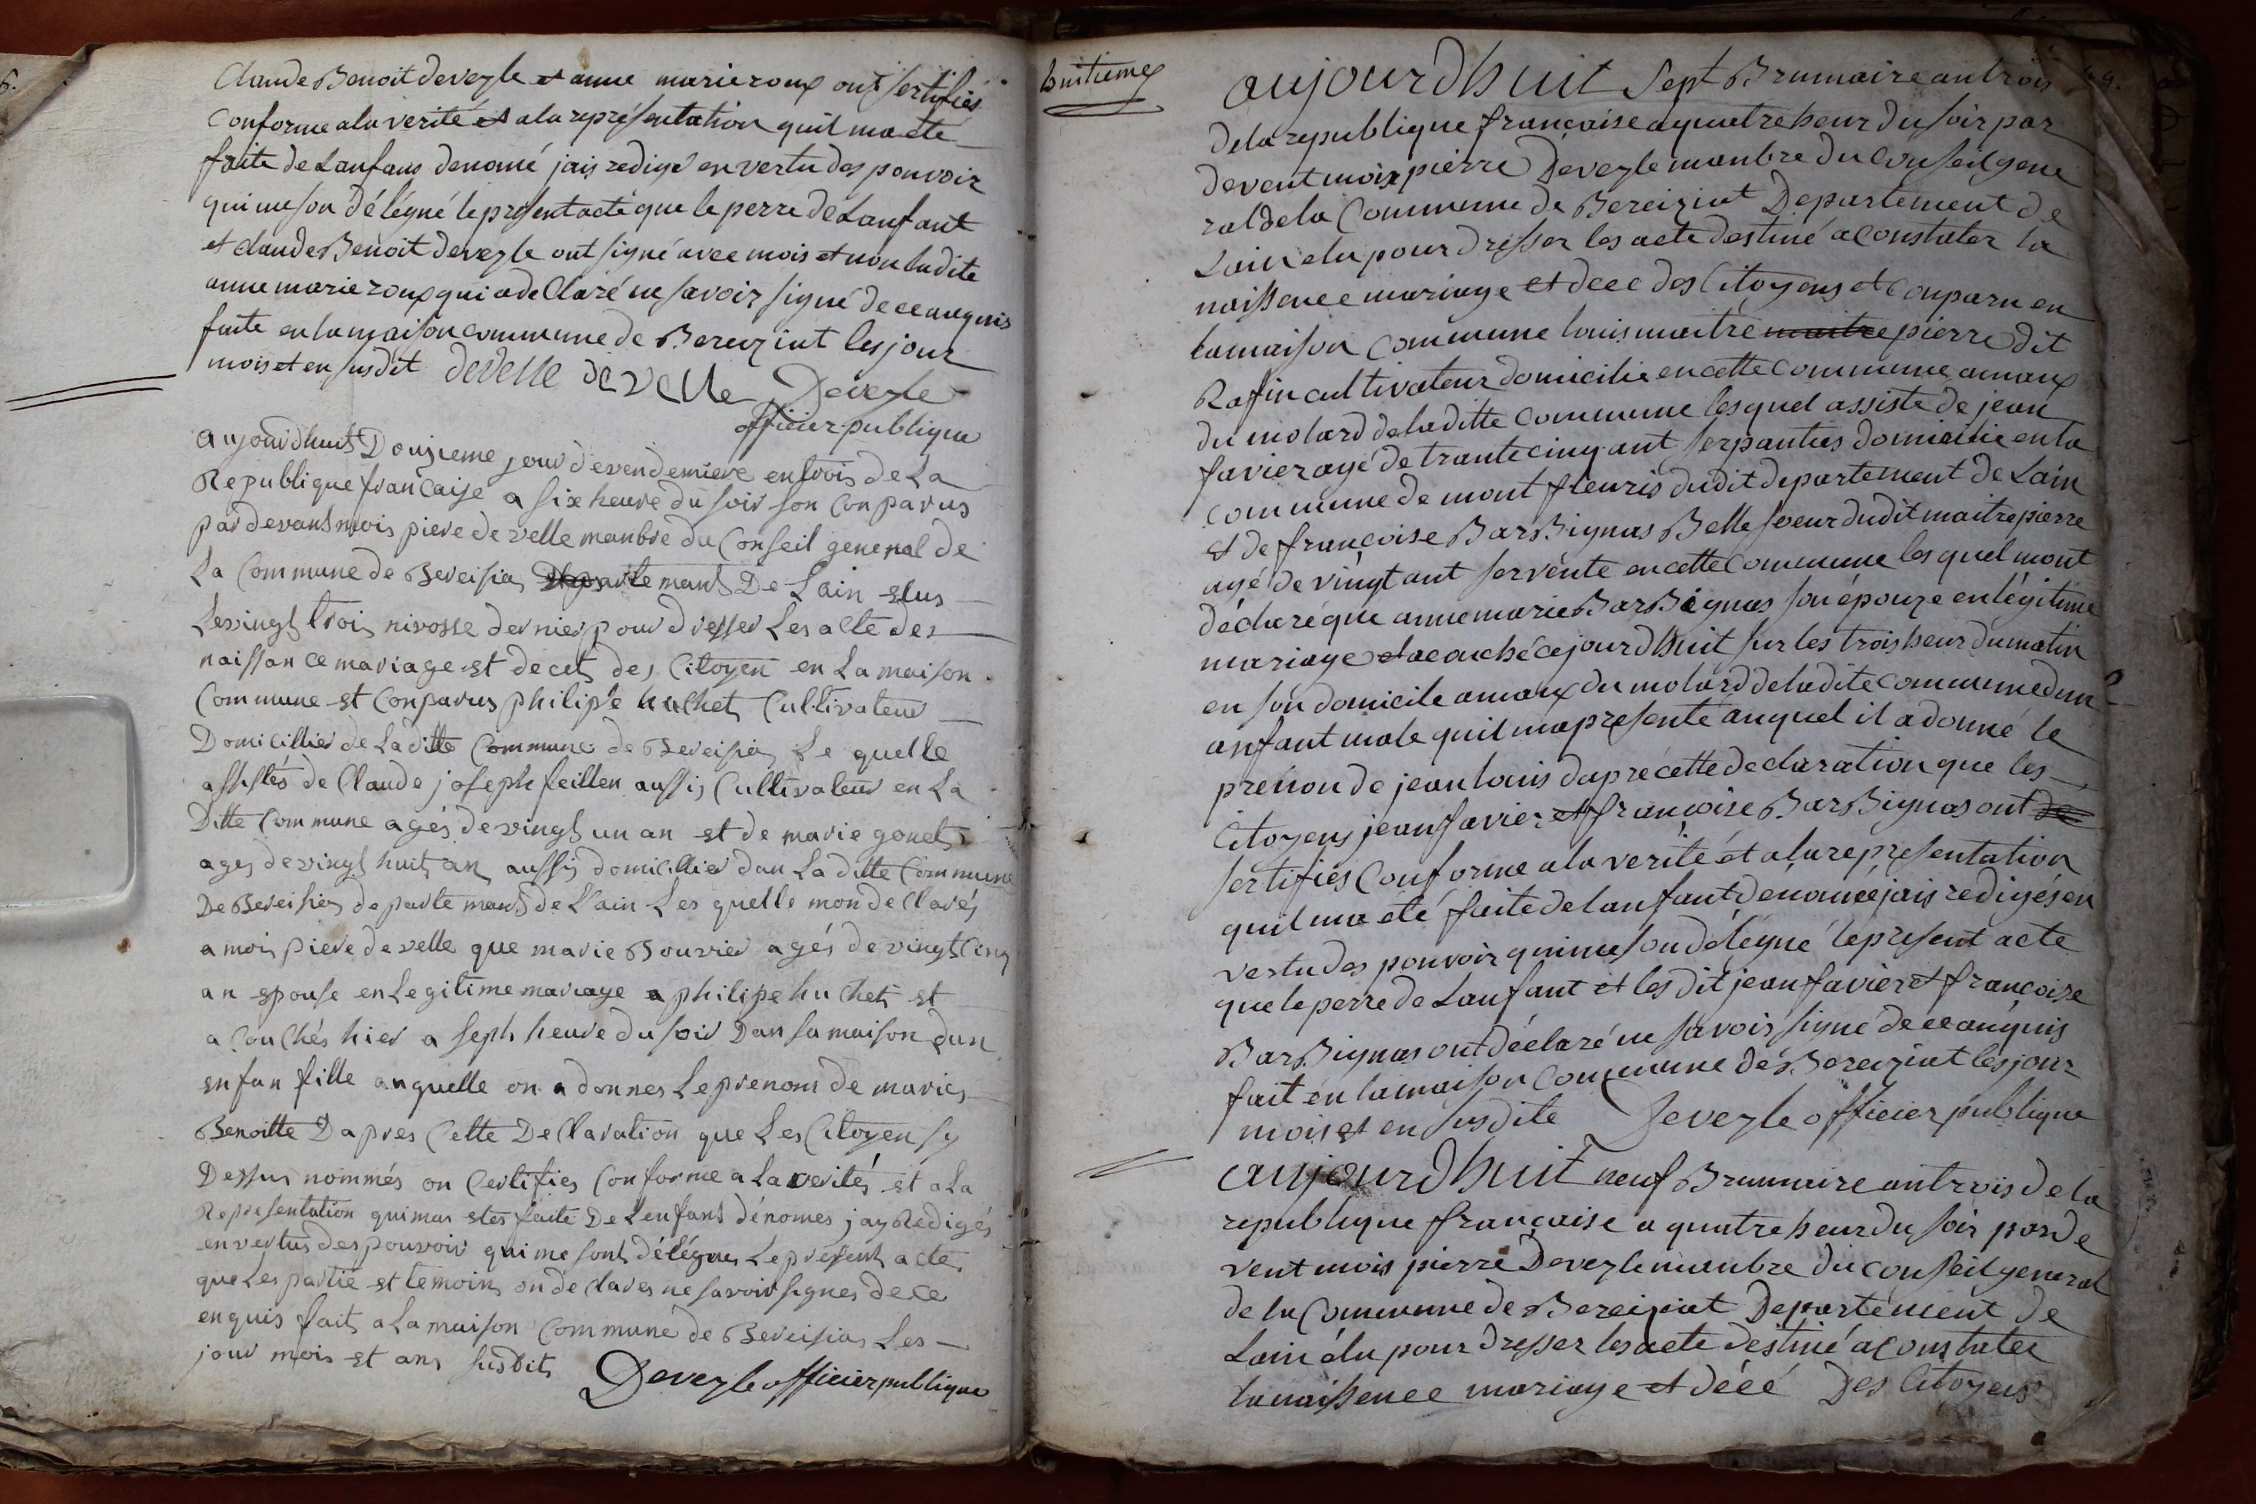 Claude Benoit deveyle et anne marie roux ont sertifiés
Conforme a la verité et a la représentation quil ma eté
faite de Lanfans denomé jais redigé en vertu des pouvoir
qui me son délégné le present acte que le perre de Lanfant
et claude Benoit deveyle ont signé avec mois et non ladite
anne marie roux qui a declaré ne savoir signé de ce anquis
faite en la maison commune de Bereiziat les jour
mois et en susdit develle develle Deveyle
officier publique
aujourdhuit Douzieme jour de vendemiere en trois de La
Republique francaise a six heure du soir son Conparus
par devant mois piere develle manbre du Conseil general de
La Commune de Bereisia Departemant De Lain elus
Le vingt trois nivosse dernier pour dresser Les acte des
naissance mariage et decet des Citoyen en La maison
Commune est Conparus philipe huchet Cultivateur
Domicillier de La ditte Commune de Bereisia Le quelle
assistés de Claude joseph feillen aussis Cultivateur en La
Ditte Commune agés de vingt un an et de marie gonet
ages de vingt huit an aussis domicillier dan La ditte Commune
De Bereisia departemant de L'ain Les quelle mon declarés
a mois piere develle que marie Bouvier agés de vingt Cinq
an epouse en Legitime mariage a philipe huchet et
a Couchés hier a seph heure du soir Dan sa maison dun
enfan fille anquelle on a donnes Le prenom de marie
Benoitte Dapres Cette Declaration que Les Citoyen sy
Dessus nommés on Certifies Conforme a La verités et a La
Representation quima etes faite De Lenfant dénomes jay Redigés
en vertus des pouvoir qui me sont délégues Le present acte
que Les partie et temoin on declares ne savoir signes de ce
enquis fait a La maison Commune de Bereisia Les
jour mois et ans susdit Deveyle officier publique
huitieme
aujourdhuit sept Brumaire an trois
49.
de la republique françoise a quatre heur du soir par
devent mois pierre Deveyle manbre du conseil gene
ral de la Commune de Bereiziat Departement de
Lain elu pour dresser les acte destiné a constater la
naissence mariage et decé des Citoyens et conparu en
la maison commune louis maitre maitre pierre dit
Rafin cultivateur domicilie en cette commune amaux
du molard de la ditte commune les quel assiste de jean
favier agé de trante cinq ant serpantier domicilie en la
commune de mont fleuris dudit departement de Lain
et de françoise BarBignas Belle soeur dudit maitre pierre
agé de vingt ant servente en cette commune les quel mont
déclaré que anne marie BarBignas son épouze en légitime
mariage et acouché ce jourdhuit sur les trois heur du matin
en son domicile amaux du molard de ladite commune dun
anfant male quil ma presenté auquel il a donné le
prenon de jean louis dapré cette declaration que les
Citoyens jean favier et françoise BarBignas ont de
sertifiés Conforme a la verité et a la representation
quil ma eté faite de lanfant denomée jais redigés en
vertu des pouvoir qui me son délégné le present acte
que le perre de Lanfant et les dit jean favier et françoise
BarBignas ont déclaré ne savoir signé de ce anquis
fait en la maison commune de Bereiziat les jour
mois et en susdite Deveyle officier publique
aujourdhuit neuf Brumaire an trois de la
republique française a quatre heur du soir par de
vent mois pierre Deveyle manbre du conseil general
de la Commune de Bereiziat Departement de
Lain élu pour dresser les acte destiné a constater
la naissence mariage et décé Des Citoyens